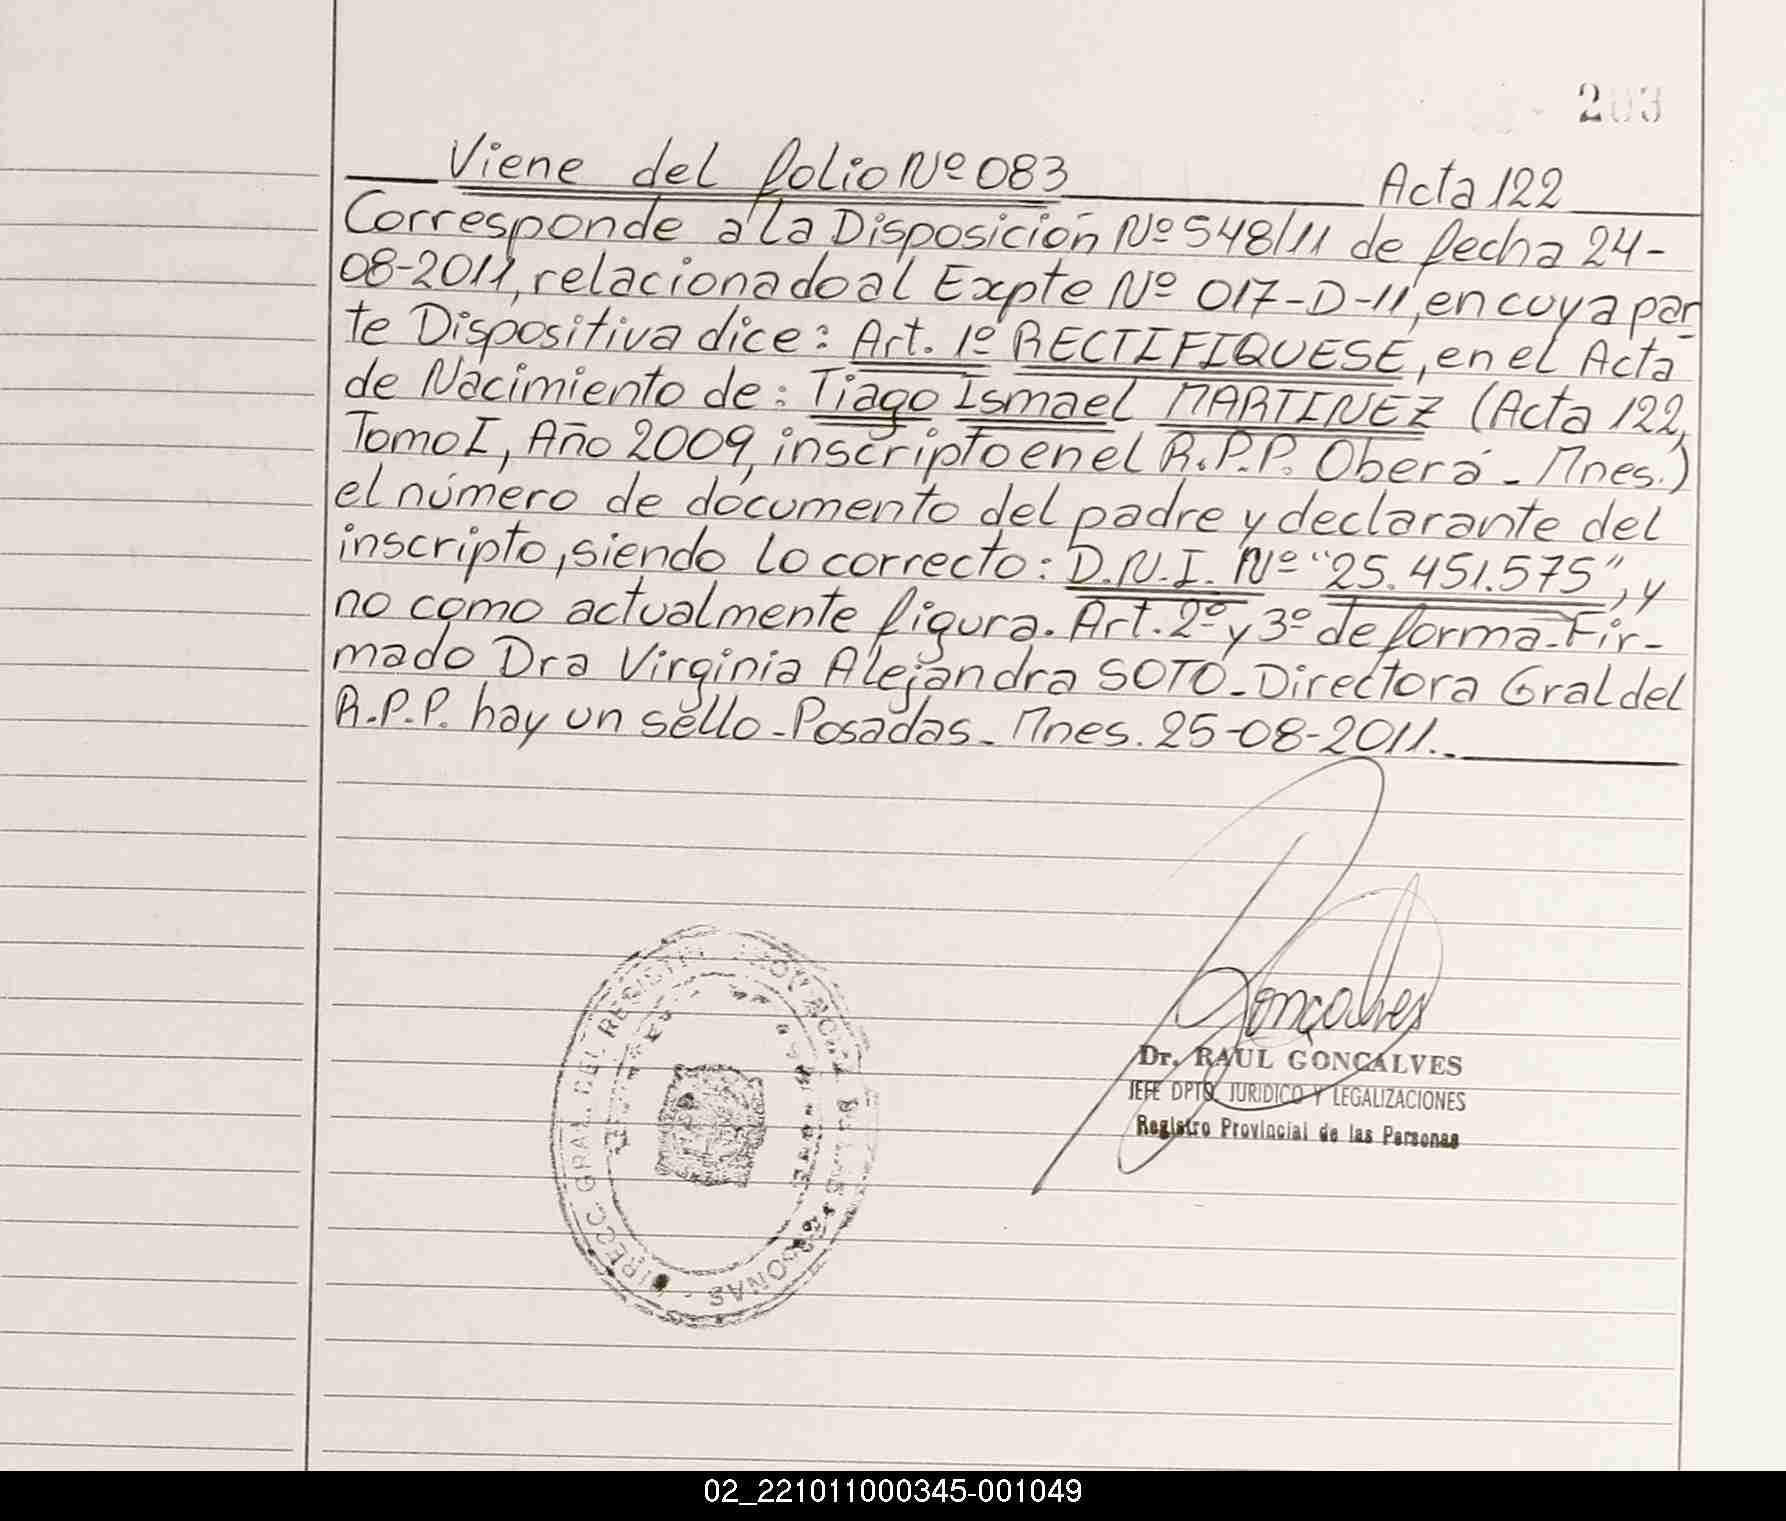 203
Viene del folio Nº 083 Acta 122
Corresponde a la Disposición Nº 548/11 de fecha 24-
08-2011, relacionado al Expte Nº 017-D-11, en cuya par
te Dispositiva dice: Art. 1º RECTIFIQUESE, en el Acta
de Nacimiento de: Tiago Ismael MARTINEZ (Acta 122,
Tomo I, Año 2009, inscripto en el R.P.P. Oberá - Mnes.)
el número de documento del padre y declarante del
inscripto, siendo lo correcto: D.N.I. Nº "25.451.575", y
no como actualmente figura. Art. 2º y 3º de forma. Fir-
mado Dra Virginia Alejandra SOTO - Directora Gral del
R.P.P. hay un sello - Posadas - Mnes. 25-08-2011.
Gonçalves
Dr. RAUL GONCALVES
JEFE DPTO. JURIDICO Y LEGALIZACIONES
Registro Provincial de las Personas
DIRECC. GRAL. DEL REGIST PERSONAS
02_221011000345-001049